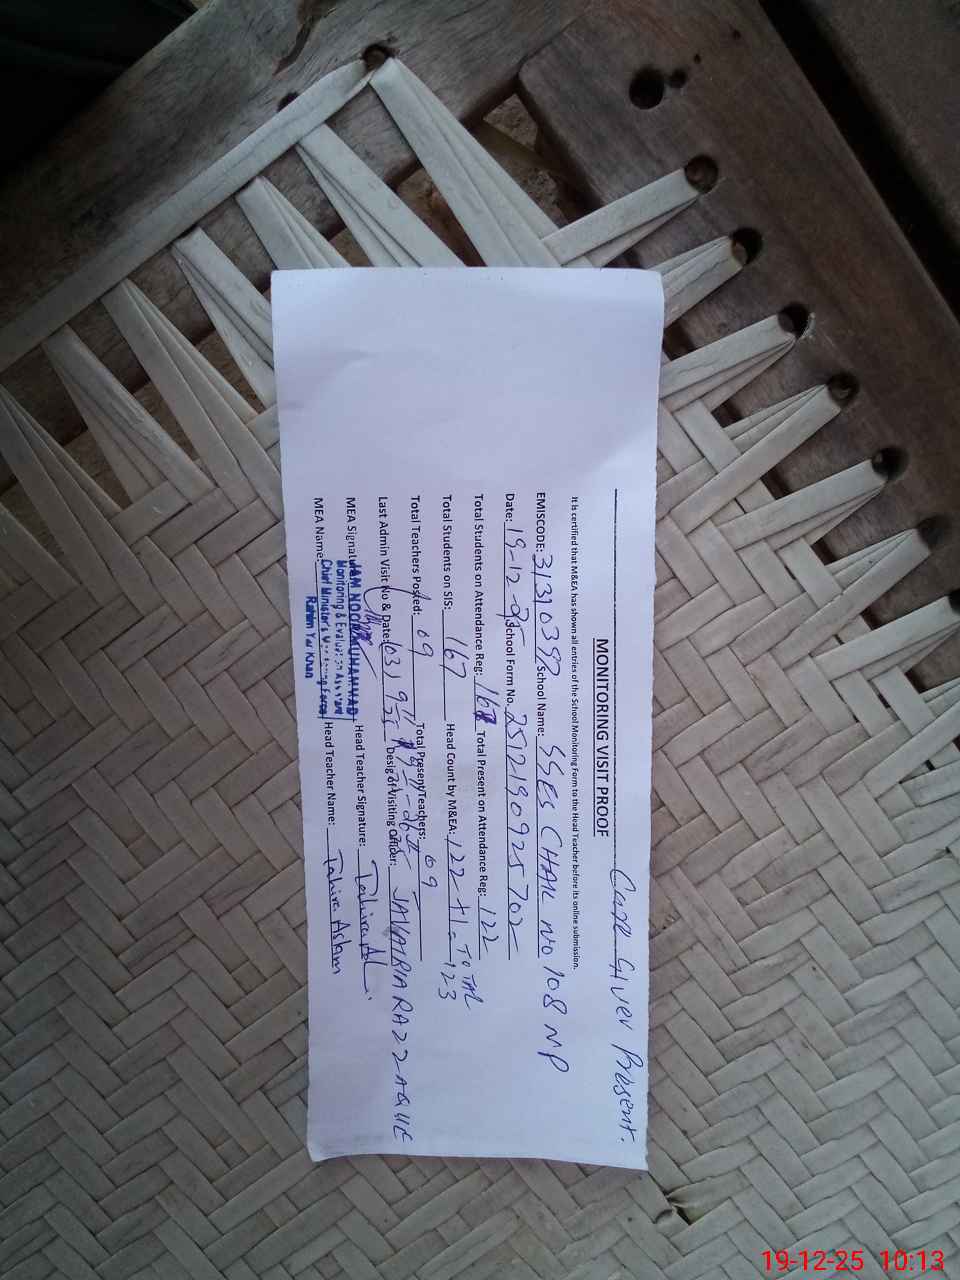 Care Giver Present.
MONITORING VISIT PROOF
It is certified that M&EA has shown all entries of the School Monitoring Form to the Head Teacher before its online submission.
EMISCODE: 31310397 School Name: SSES CHAK NO 108 NP
Date: 19-12-25 School Form No. 2512190925702
Total Students on Attendance Reg: 167 Total Present on Attendance Reg: 122
Total Students on SIS: 167 Head Count by M&EA: 122+1= TOTAL 123
Total Teachers Posted: 09 Total Present Teachers: 09
Last Admin Visit No & Date: Desig of Visiting officer: JAVAIRIA RAZZAQUE
MEA Signature: Head Teacher Signature:
MEA Name: Head Teacher Name: Tahira Aslam
JAM NOOR MUHAMMAD
Monitoring & Evaluation Assistant
Chief Minister's Monitoring Force
Rahim Yar Khan
19-12-25 10:13